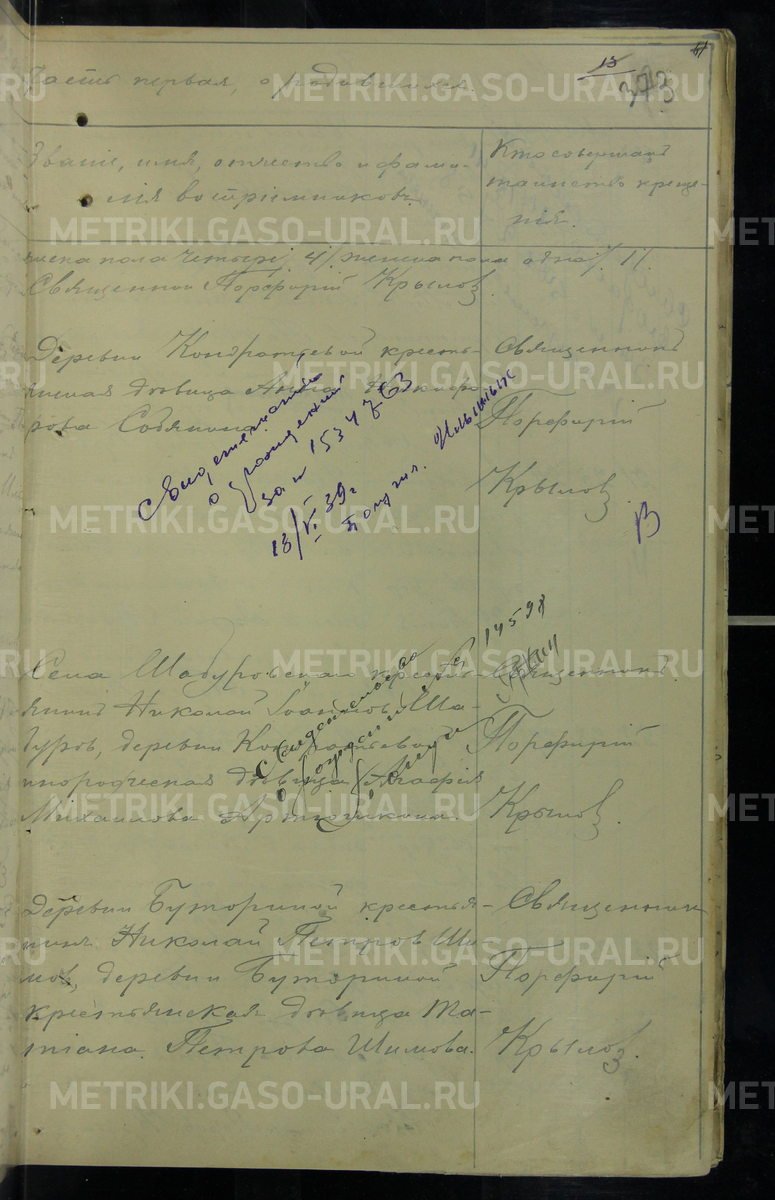 13
373
Часть первая, о родившихся.
Званіе, имя, отчество и фами-
лія воспріемниковъ.
Кто совершалъ
таинство креще-
нія.
пола четыре /4/ женска пола одна /1/.
Священник Порфирій Крылов.
Деревни Кондратьевой кресть-
янская дѣвица Анна
рова Собянина.
Священникъ
Порфирій
Крылов
Свидетельство
о рождении
за №
13/VI 39 г
В
Села Шабуровскаго кресть-
янинъ Николай Іоаннов Ша-
буров, деревни Кондратьевой
инородческая дѣвица Агафія
Михаилова
Священникъ
Порфирій
Крылов.
Свидетельство
о рождении 14598
Деревни Буториной крестья-
нинъ Николай Петров Ши-
мов, деревни Буториной
крестьянская дѣвица Та-
тіана Петрова Шимова.
Священник
Порфирій
Крылов.
METRIKI.GASO-URAL.RU